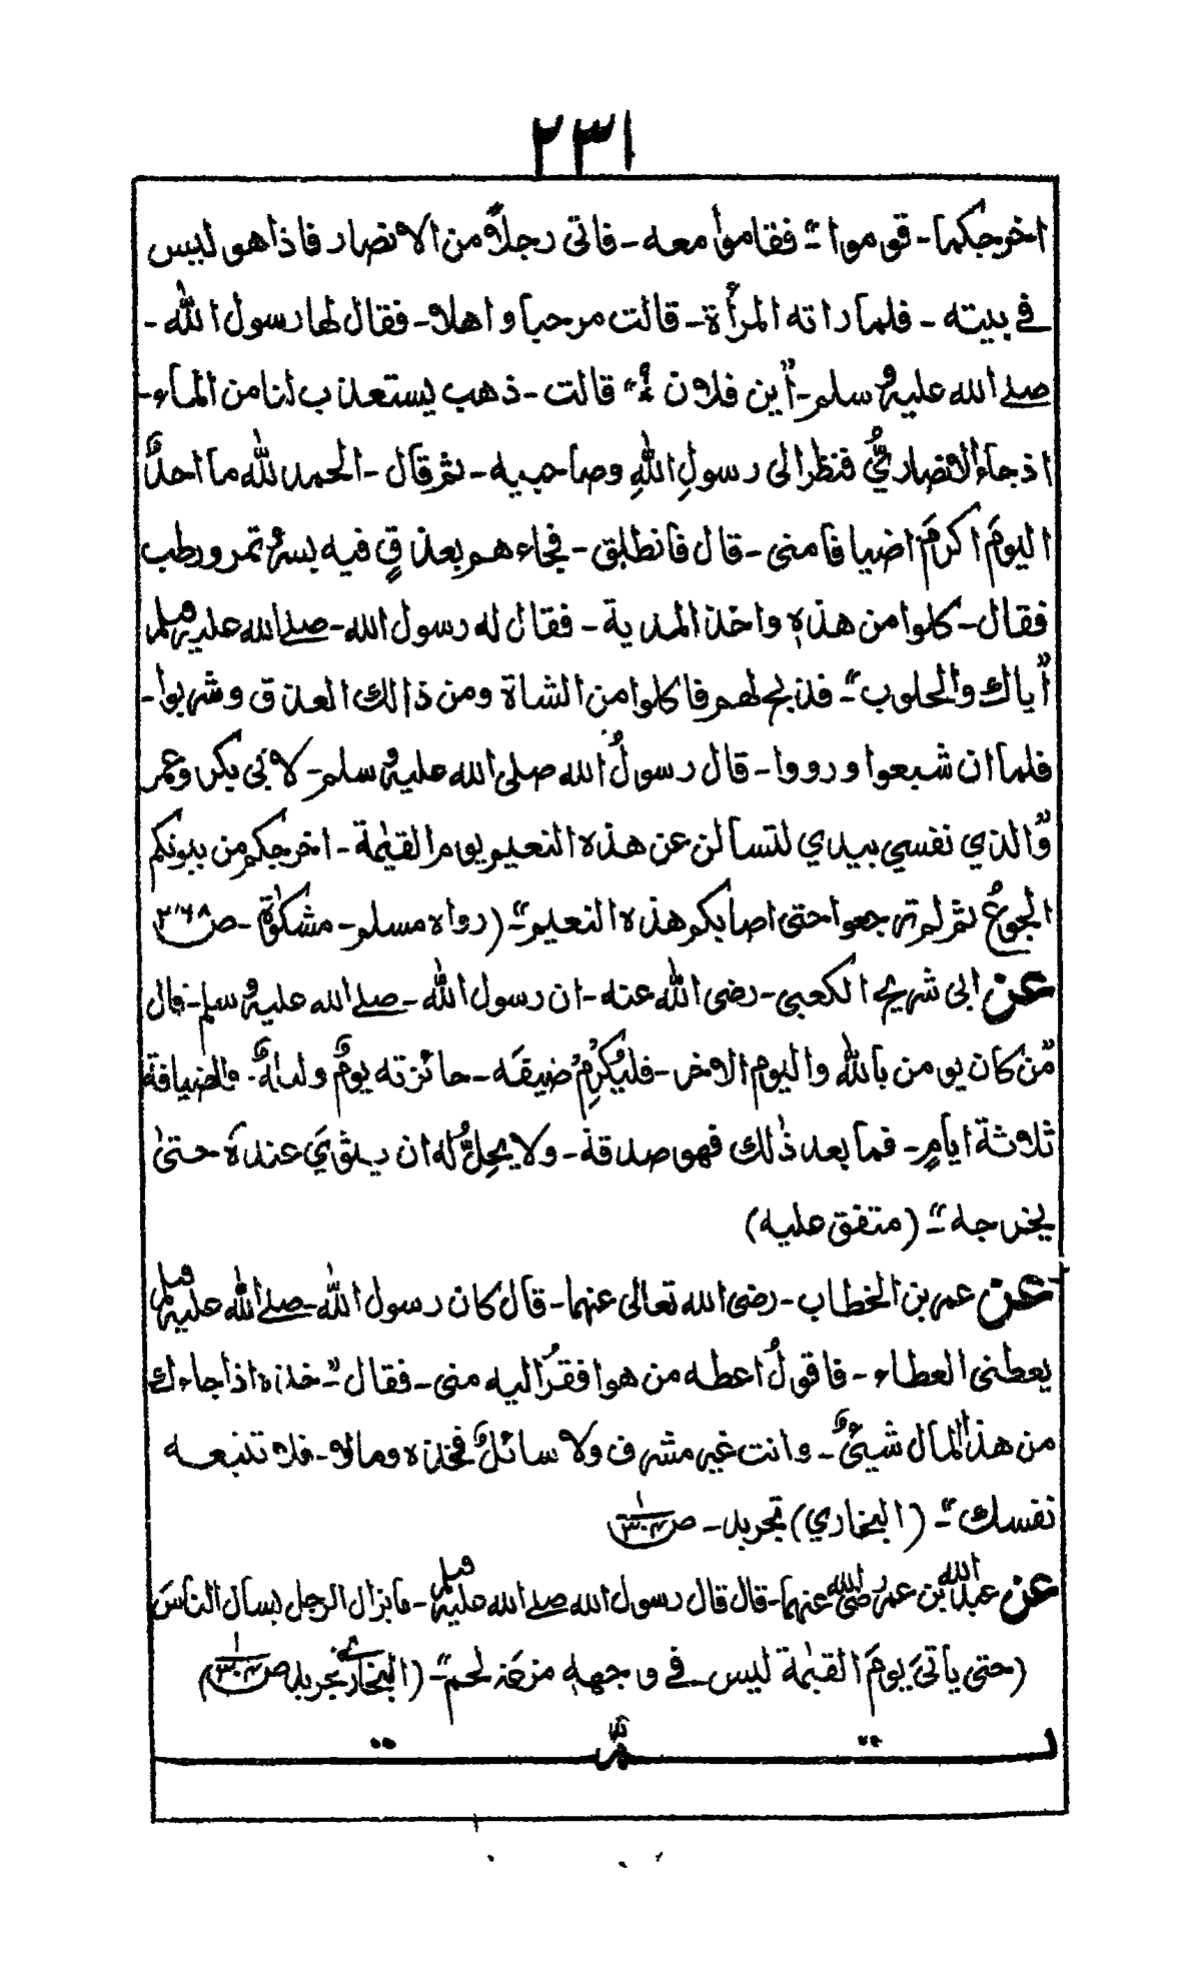 ٢٣١
اخرجكما۔ قوموا"۔ فقاموا معه۔ فاتى رجلاً من الانصار فاذا هو ليس
في بيته۔ فلما راته المرأة۔ قالت مرحبا و اهلا۔ فقال لها رسول الله۔
صلے الله عليه و سلم۔ "أين فلان؟" قالت۔ ذهب يستعذب لنا من الماء۔
اذ جاء الانصاريُّ فنظر الى رسولِ اللهِ وصاحبيه۔ ثم قال۔ الحمد لله ما احدٌ
اليومَ اكرمَ اضيافا منى۔ قال فانطلق۔ فجاءهم بعذقٍ فيه بسر و تمر و رطب
فقال۔ كلوا من هذهٖ واخذ المدية۔ فقال له رسول الله۔ صلے الله عليه وسلم
"أياك والحلوب"۔ فذبح لهم فاكلوا من الشاة ومن ذالك العذق و شربوا۔
فلما ان شبعوا و رووا۔ قال رسولُ الله صلى الله عليه و سلم۔ لابى بكر وعمر
"والذي نفسي بيدي لتسالن عن هذه النعيم يوم القيٰمة۔ اخرجكم من بيوتكم
الجوعُ ثم لم ترجعوا حتى اصابكم هذه النعيم"۔ (رواه مسلم۔ مشكوٰة۔ ص ٣٦٨)
عن ابى شريح الكعبى۔ رضى الله عنه۔ ان رسول الله۔ صلے الله عليه و سلم۔ قال
"من كان يومن بالله واليوم الاخر۔ فليُكْرِمْ ضيفَه۔ جائزته يومٌ وليلةٌ۔ والضيافة
ثلاثة ايامٍ۔ فما بعد ذٰلك فهو صدقة۔ ولا يحِلُّ له ان يثوي عنده حتىٰ
يخرجه"۔ (متفق عليه)
عن عمر بن الخطاب۔ رضى الله تعالى عنهما۔ قال كان رسول الله۔ صلے الله عليه وسلم
يعطنى العطاء۔ فاقولُ اعطه من هو افقرُ اليه منى۔ فقال"۔ خذه اذا جاءك
من هذا المال شيئٌ۔ وانت غير مشرف ولا سائلٌ فخذه ومالا۔ فلا تتبعه
نفسك"۔ (البخاري) تجريد۔ ص
عن عبد الله بن عمر رضى الله عنهما۔ قال قال رسول الله صلے الله عليه وسلم۔ مايزال الرجل يسأل الناسَ
(حتى ياتىَ يومَ القيٰمة ليس في وجههٖ مزعة لحم"۔ (البخارى تجريد ص